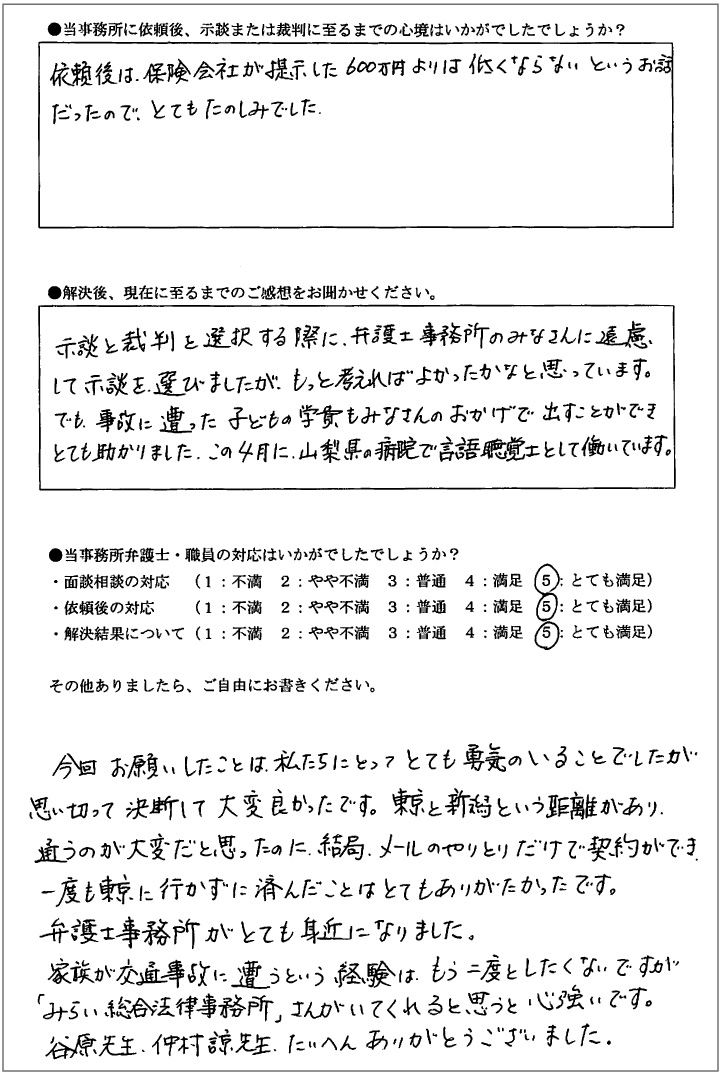 ●当事務所に依頼後、示談または裁判に至るまでの心境はいかがでしたでしょうか？
依頼後は、保険会社が提示した600万円よりは低くならないというお話
だったので、とてもたのしみでした。
●解決後、現在に至るまでのご感想をお聞かせください。
示談と裁判を選択する際に、弁護士事務所のみなさんに遠慮
して示談を選びましたが、もっと考えればよかったかなと思っています。
でも、事故に遭った子どもの学費もみなさんのおかげで出すことができ
とても助かりました。この4月に、山梨県の病院で言語聴覚士として働いています。
●当事務所弁護士・職員の対応はいかがでしたでしょうか？
・面談相談の対応　（１：不満　２：やや不満　３：普通　４：満足　５：とても満足）
・依頼後の対応　　（１：不満　２：やや不満　３：普通　４：満足　５：とても満足）
・解決結果について（１：不満　２：やや不満　３：普通　４：満足　５：とても満足）
その他ありましたら、ご自由にお書きください。
今回お願いしたことは、私たちにとってとても勇気のいることでしたが
思い切って決断して大変良かったです。東京と新潟という距離があり、
通うのが大変だと思ったのに、結局、メールのやりとりだけで契約ができ、
一度も東京に行かずに済んだことはとてもありがたかったです。
弁護士事務所がとても身近になりました。
家族が交通事故に遭うという経験は、もう二度としたくないですが
「みらい総合法律事務所」さんがいてくれると思うと心強いです。
谷原先生、仲村諒先生、たいへんありがとうございました。